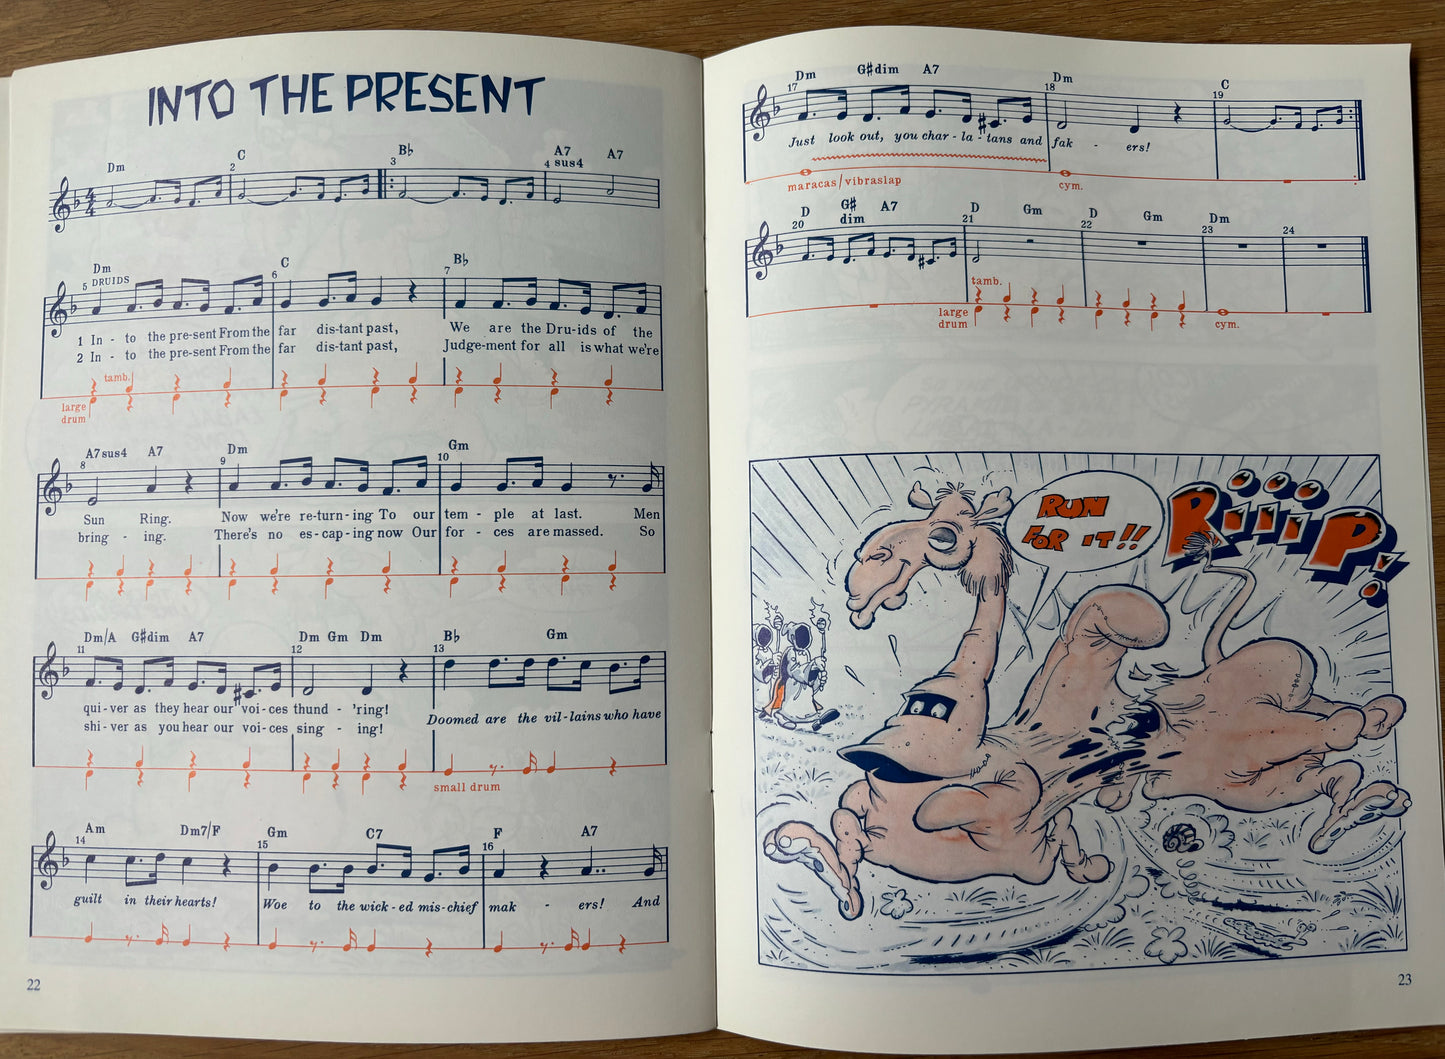 INTO THE PRESENT
Dm C B♭ A7 sus4 A7
2 3 4
4 4
Dm C B♭
5 DRUIDS 6 7
1 In - to the pre-sent From the far dis-tant past, We are the Dru-ids of the
2 In - to the pre-sent From the far dis-tant past, Judge-ment for all is what we're
tamb.
large drum
A7sus4 A7 Dm Gm
8 9 10
Sun Ring. Now we're re-turn-ing To our tem - ple at last. Men
bring - ing. There's no es-cap-ing now Our for - ces are massed. So
Dm/A G♯dim A7 Dm Gm Dm B♭ Gm
11 12 13
qui-ver as they hear our voi-ces thund - 'ring! Doomed are the vil-lains who have
shi-ver as you hear our voi-ces sing - ing!
small drum
Am Dm7/F Gm C7 F A7
14 15 16
guilt in their hearts! Woe to the wick-ed mis-chief mak - ers! And
22
Dm G♯dim A7 Dm C
17 18 19
Just look out, you char-la-tans and fak - ers!
maracas/vibraslap cym.
D G♯ dim A7 D Gm D Gm Dm
20 21 22 23 24
tamb.
large drum cym.
RUN
FOR IT!!
RiiiP!
23